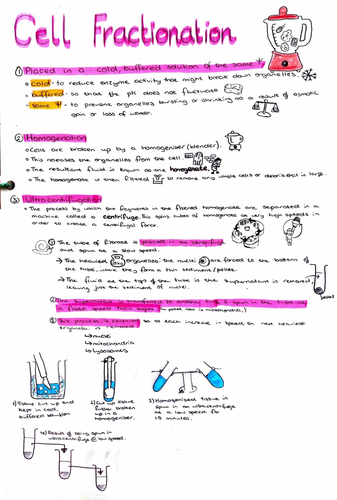 Cell Fractionation
① Placed in a cold, buffered solution of the same Ψ
○ cold - to reduce enzyme activity that might break down organelles.
○ buffered - so that the pH does not fluctuate
○ same Ψ - to prevent organelles bursting or shrinking as a result of osmotic
gain or loss of water.
② Homogenation
○ Cells are broken up by a homogeniser (blender).
○ This releases the organelles from the cell
○ The resultant fluid is known as the homogenate.
○ The homogenate is then filtered to remove any whole cells or debris that is large.
③ Ultracentrifugation
○ The process by which the fragments in the filtered homogenate are separated in a
machine called a centrifuge. This spins tubes of homogenate at very high speeds in
order to create a centrifugal force.
① The tube of filtrate is placed in the centrifuge
and spun at a slow speed.
→ The heaviest organelles, the nuclei are forced to the bottom of
the tube, where they form a thin sediment/pellet.
→ The fluid at the top of the tube is the supernatant is removed,
leaving just the sediment of nuclei.
pellet
② The supernatant is transferred to another tube & spun in the tube at
a faster speed than before
③ This process is continued so at each increase in speed the next heaviest
organelle is removed
↳ nuclei
↳ mitochondria
↳ lysosomes
1) Tissue cut up and
kept in cold,
buffered solution
2) Cut up tissue
further broken
up in a
homogeniser.
3) Homogenised tissue is
spun in an ultracentrifuge
at a low speed for
10 minutes.
4) Result of being spun in
ultracentrifuge @ low speed.